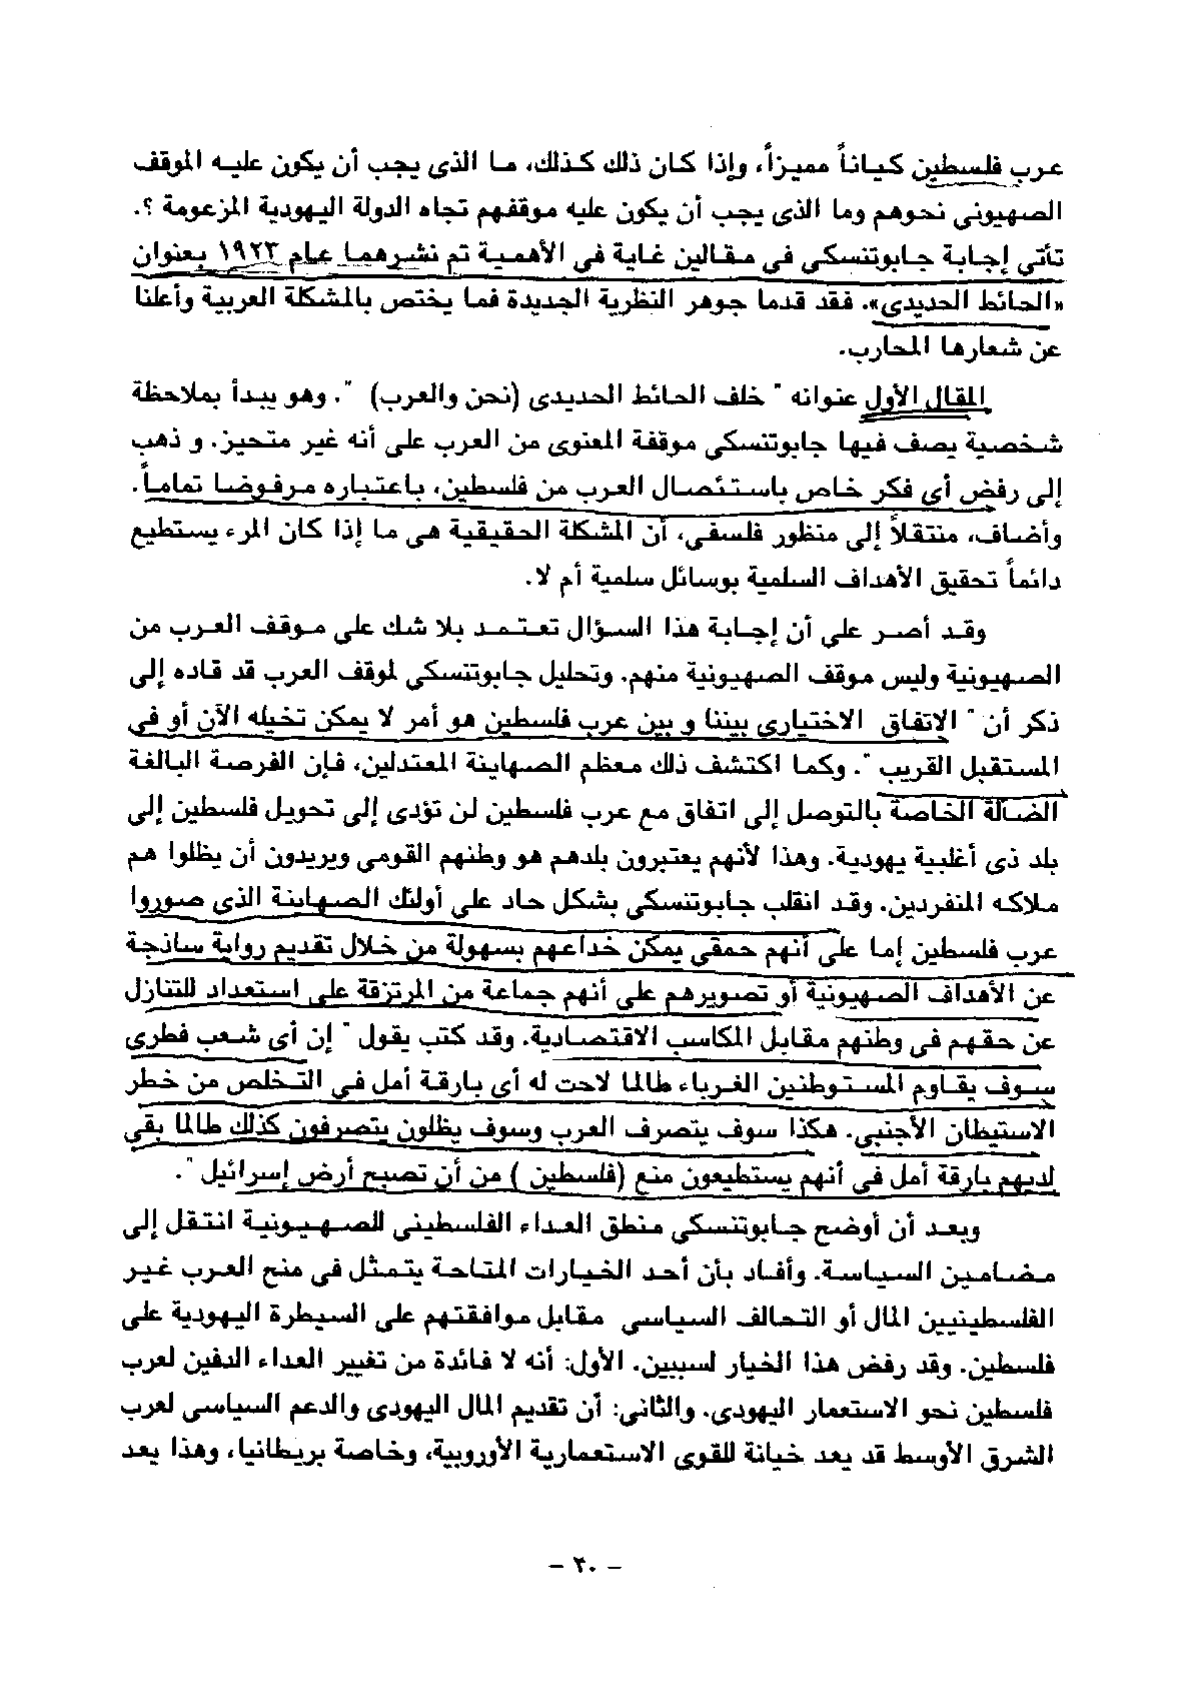 عرب فلسطين كياناً مميزاً، وإذا كان ذلك كذلك، ما الذى يجب أن يكون عليه الموقف
الصهيوني نحوهم وما الذى يجب أن يكون عليه موقفهم تجاه الدولة اليهودية المزعومة ؟.
تأتى إجابة جابوتنسكى في مقالين غاية فى الأهمية تم نشرهما عام ١٩٢٣ بعنوان
«الحائط الحديدى». فقد قدما جوهر النظرية الجديدة فما يختص بالمشكلة العربية وأعلنا
عن شعارها المحارب.
المقال الأول عنوانه " خلف الحائط الحديدى (نحن والعرب) ". وهو يبدأ بملاحظة
شخصية يصف فيها جابوتنسكى موقفة المعنوى من العرب على أنه غير متحيز. و ذهب
إلى رفض أى فكر خاص باستئصال العرب من فلسطين، باعتباره مرفوضا تماماً.
وأضاف، منتقلاً إلى منظور فلسفي، أن المشكلة الحقيقية هى ما إذا كان المرء يستطيع
دائماً تحقيق الأهداف السلمية بوسائل سلمية أم لا.
وقد أصر على أن إجابة هذا السؤال تعتمد بلا شك على موقف العرب من
الصهيونية وليس موقف الصهيونية منهم. وتحليل جابوتنسكى لموقف العرب قد قاده إلى
ذكر أن " الاتفاق الاختيارى بيننا و بين عرب فلسطين هو أمر لا يمكن تخيله الآن أو فى
المستقبل القريب ". وكما اكتشف ذلك معظم الصهاينة المعتدلين، فإن الفرصة البالغة
الضآلة الخاصة بالتوصل إلى اتفاق مع عرب فلسطين لن تؤدى إلى تحويل فلسطين إلى
بلد ذى أغلبية يهودية. وهذا لأنهم يعتبرون بلدهم هو وطنهم القومي ويريدون أن يظلوا هم
ملاكه المنفردين. وقد انقلب جابوتنسكى بشكل حاد على أولئك الصهاينة الذى صوروا
عرب فلسطين إما على أنهم حمقى يمكن خداعهم بسهولة من خلال تقديم رواية ساذجة
عن الأهداف الصهيونية أو تصويرهم على أنهم جماعة من المرتزقة على استعداد للتنازل
عن حقهم فى وطنهم مقابل المكاسب الاقتصادية. وقد كتب يقول " إن أى شعب فطرى
سوف يقاوم المستوطنين الغرباء طالما لاحت له أى بارقة أمل في التخلص من خطر
الاستيطان الأجنبي. هكذا سوف يتصرف العرب وسوف يظلون يتصرفون كذلك طالما بقى
لديهم بارقة أمل فى أنهم يستطيعون منع (فلسطين ) من أن تصبح أرض إسرائيل ".
وبعد أن أوضح جابوتنسكى منطق العداء الفلسطينى للصهيونية انتقل إلى
مضامين السياسة. وأفاد بأن أحد الخيارات المتاحة يتمثل فى منح العرب غير
الفلسطينيين المال أو التحالف السياسى مقابل موافقتهم على السيطرة اليهودية على
فلسطين. وقد رفض هذا الخيار لسببين. الأول: أنه لا فائدة من تغيير العداء الدفين لعرب
فلسطين نحو الاستعمار اليهودى. والثانى: أن تقديم المال اليهودى والدعم السياسى لعرب
الشرق الأوسط قد يعد خيانة للقوى الاستعمارية الأوروبية، وخاصة بريطانيا، وهذا يعد
- ٢٠ -